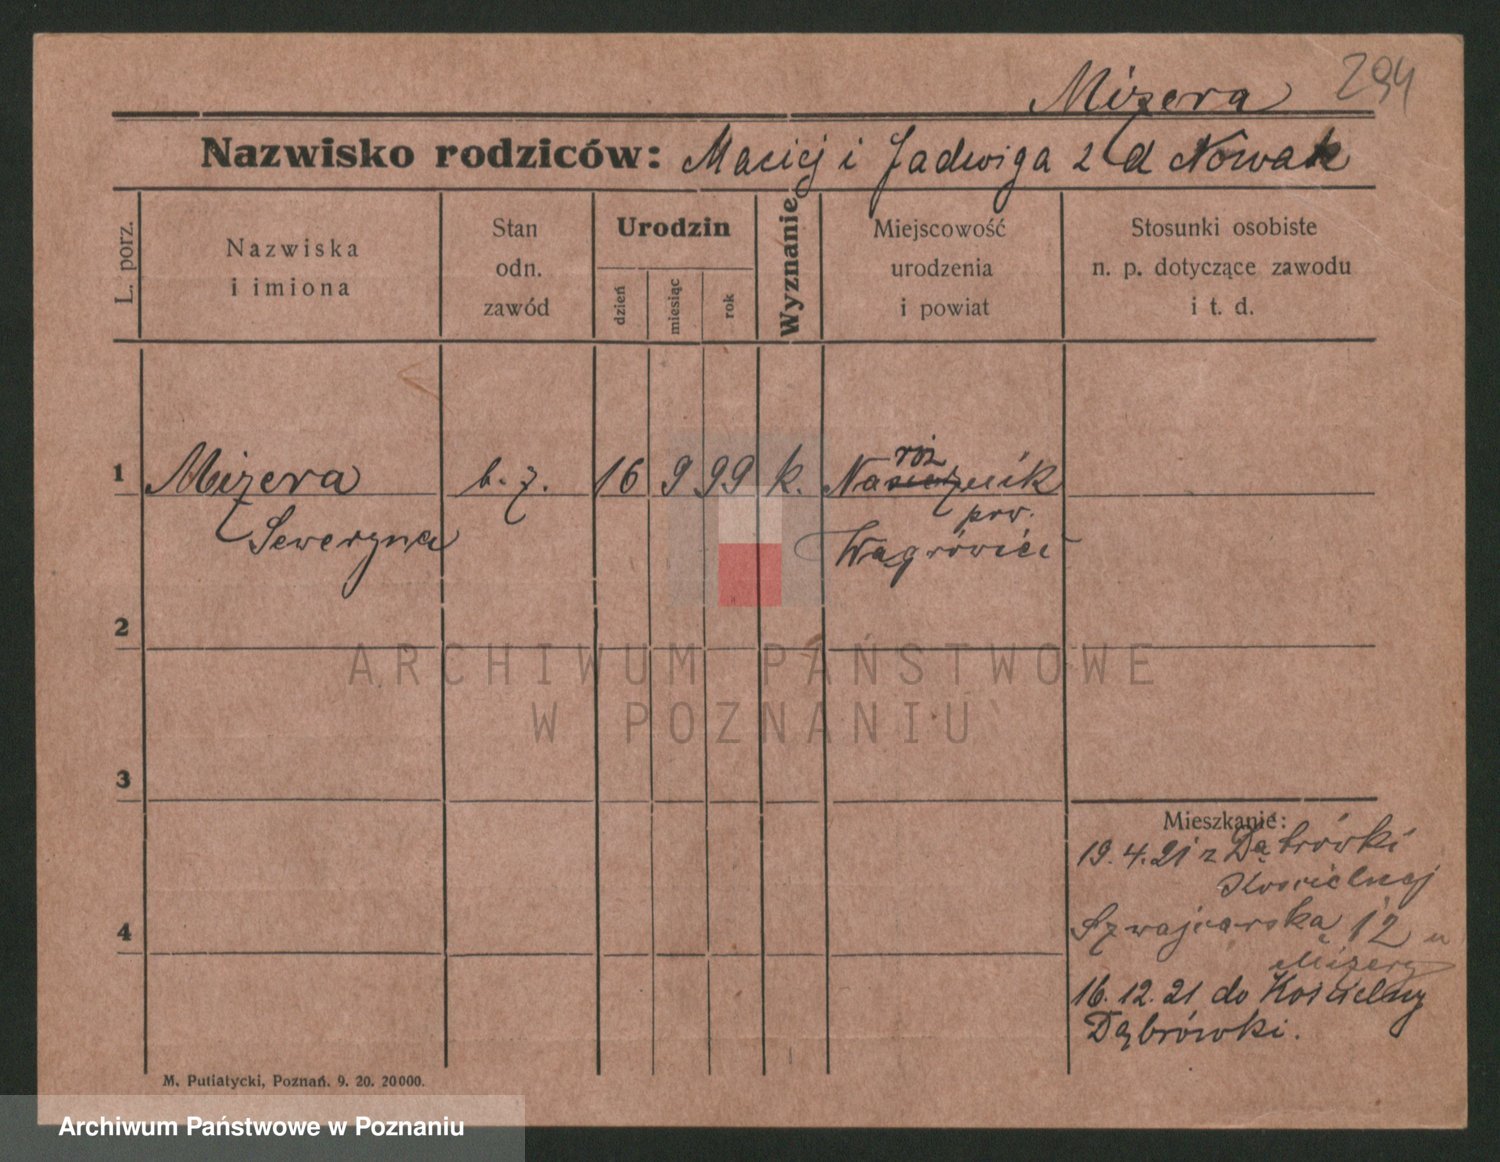 Mizera 294
Nazwisko rodziców: Maciej i Jadwiga z d Nowak
L. porz.
Nazwiska
i imiona
Stan
odn.
zawód
Urodzin
dzień
miesiąc
rok
Wyznanie
Miejscowość
urodzenia
i powiat
Stosunki osobiste
n. p. dotyczące zawodu
i t. d.
roż
1 Mizera b. z. 16 9 99 k.
pow.
Seweryna Wągrówiec
2
ARCHIWUM PAŃSTWOWE
W POZNANIU
3
Mieszkanie:
19.4.21 z Dąbrówki
Kościelnej
4
Szwajcarska 12 u
Mizery
16.12.21 do Kościelny
Dąbrówki.
M. Putiatycki, Poznań. 9. 20. 20000.
Archiwum Państwowe w Poznaniu